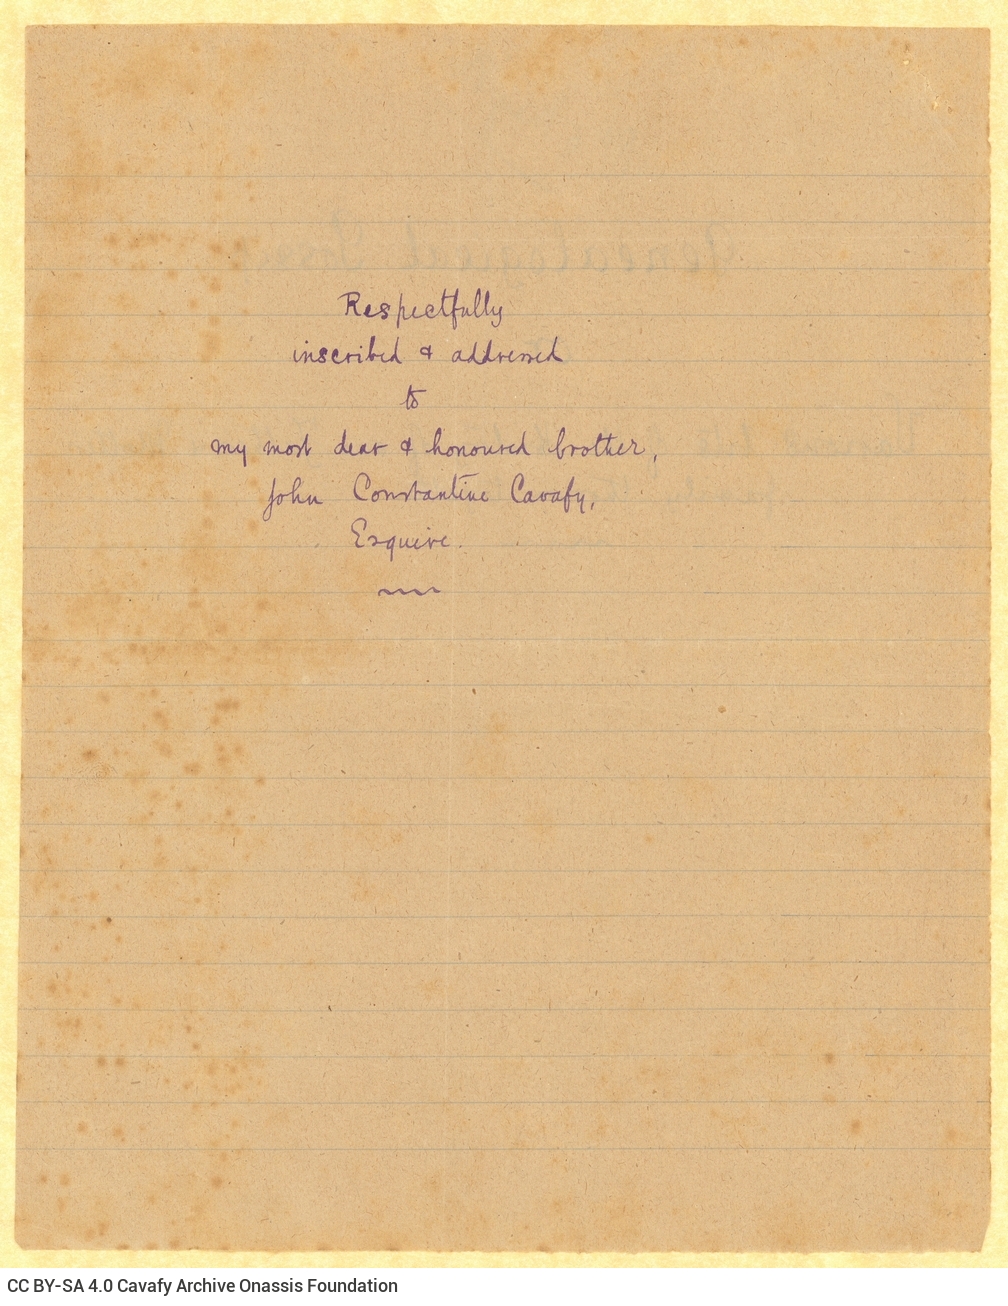 Respectfully
inscribed & addressed
to
my most dear & honoured brother,
John Constantine Cavafy,
Esquire.
CC BY-SA 4.0 Cavafy Archive Onassis Foundation